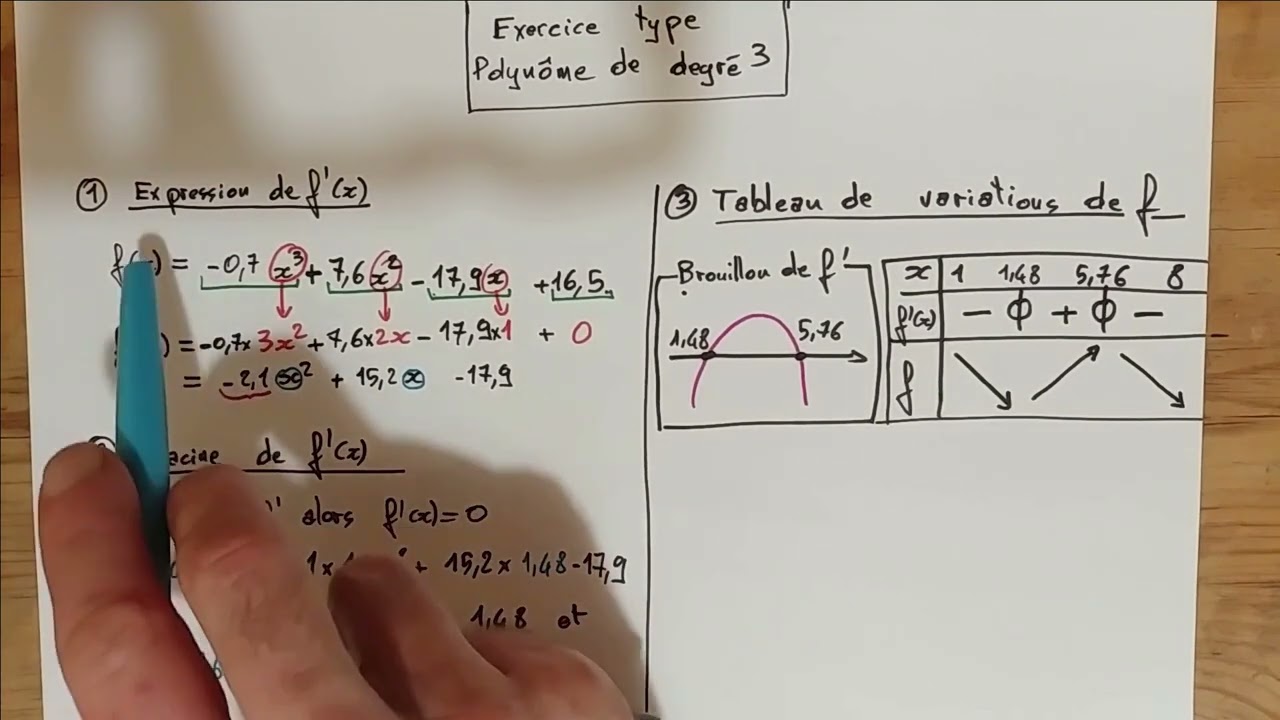 Exercice type
Polynôme de degré 3
① Expression de f'(x)
= -0,7 x³ + 7,6 x² - 17,9 x + 16,5
= -0,7 x 3x² + 7,6 x 2x - 17,9 x 1 + 0
= -2,1 x² + 15,2 x - 17,9
de f'(x)
alors f'(x) = 0
+ 15,2 x 1,48 - 17,9
1,48 et
③ Tableau de variations de f
Brouillon de f'
1,48 5,76
x 1 1,48 5,76 8
f'(x) - 0 + 0 -
f